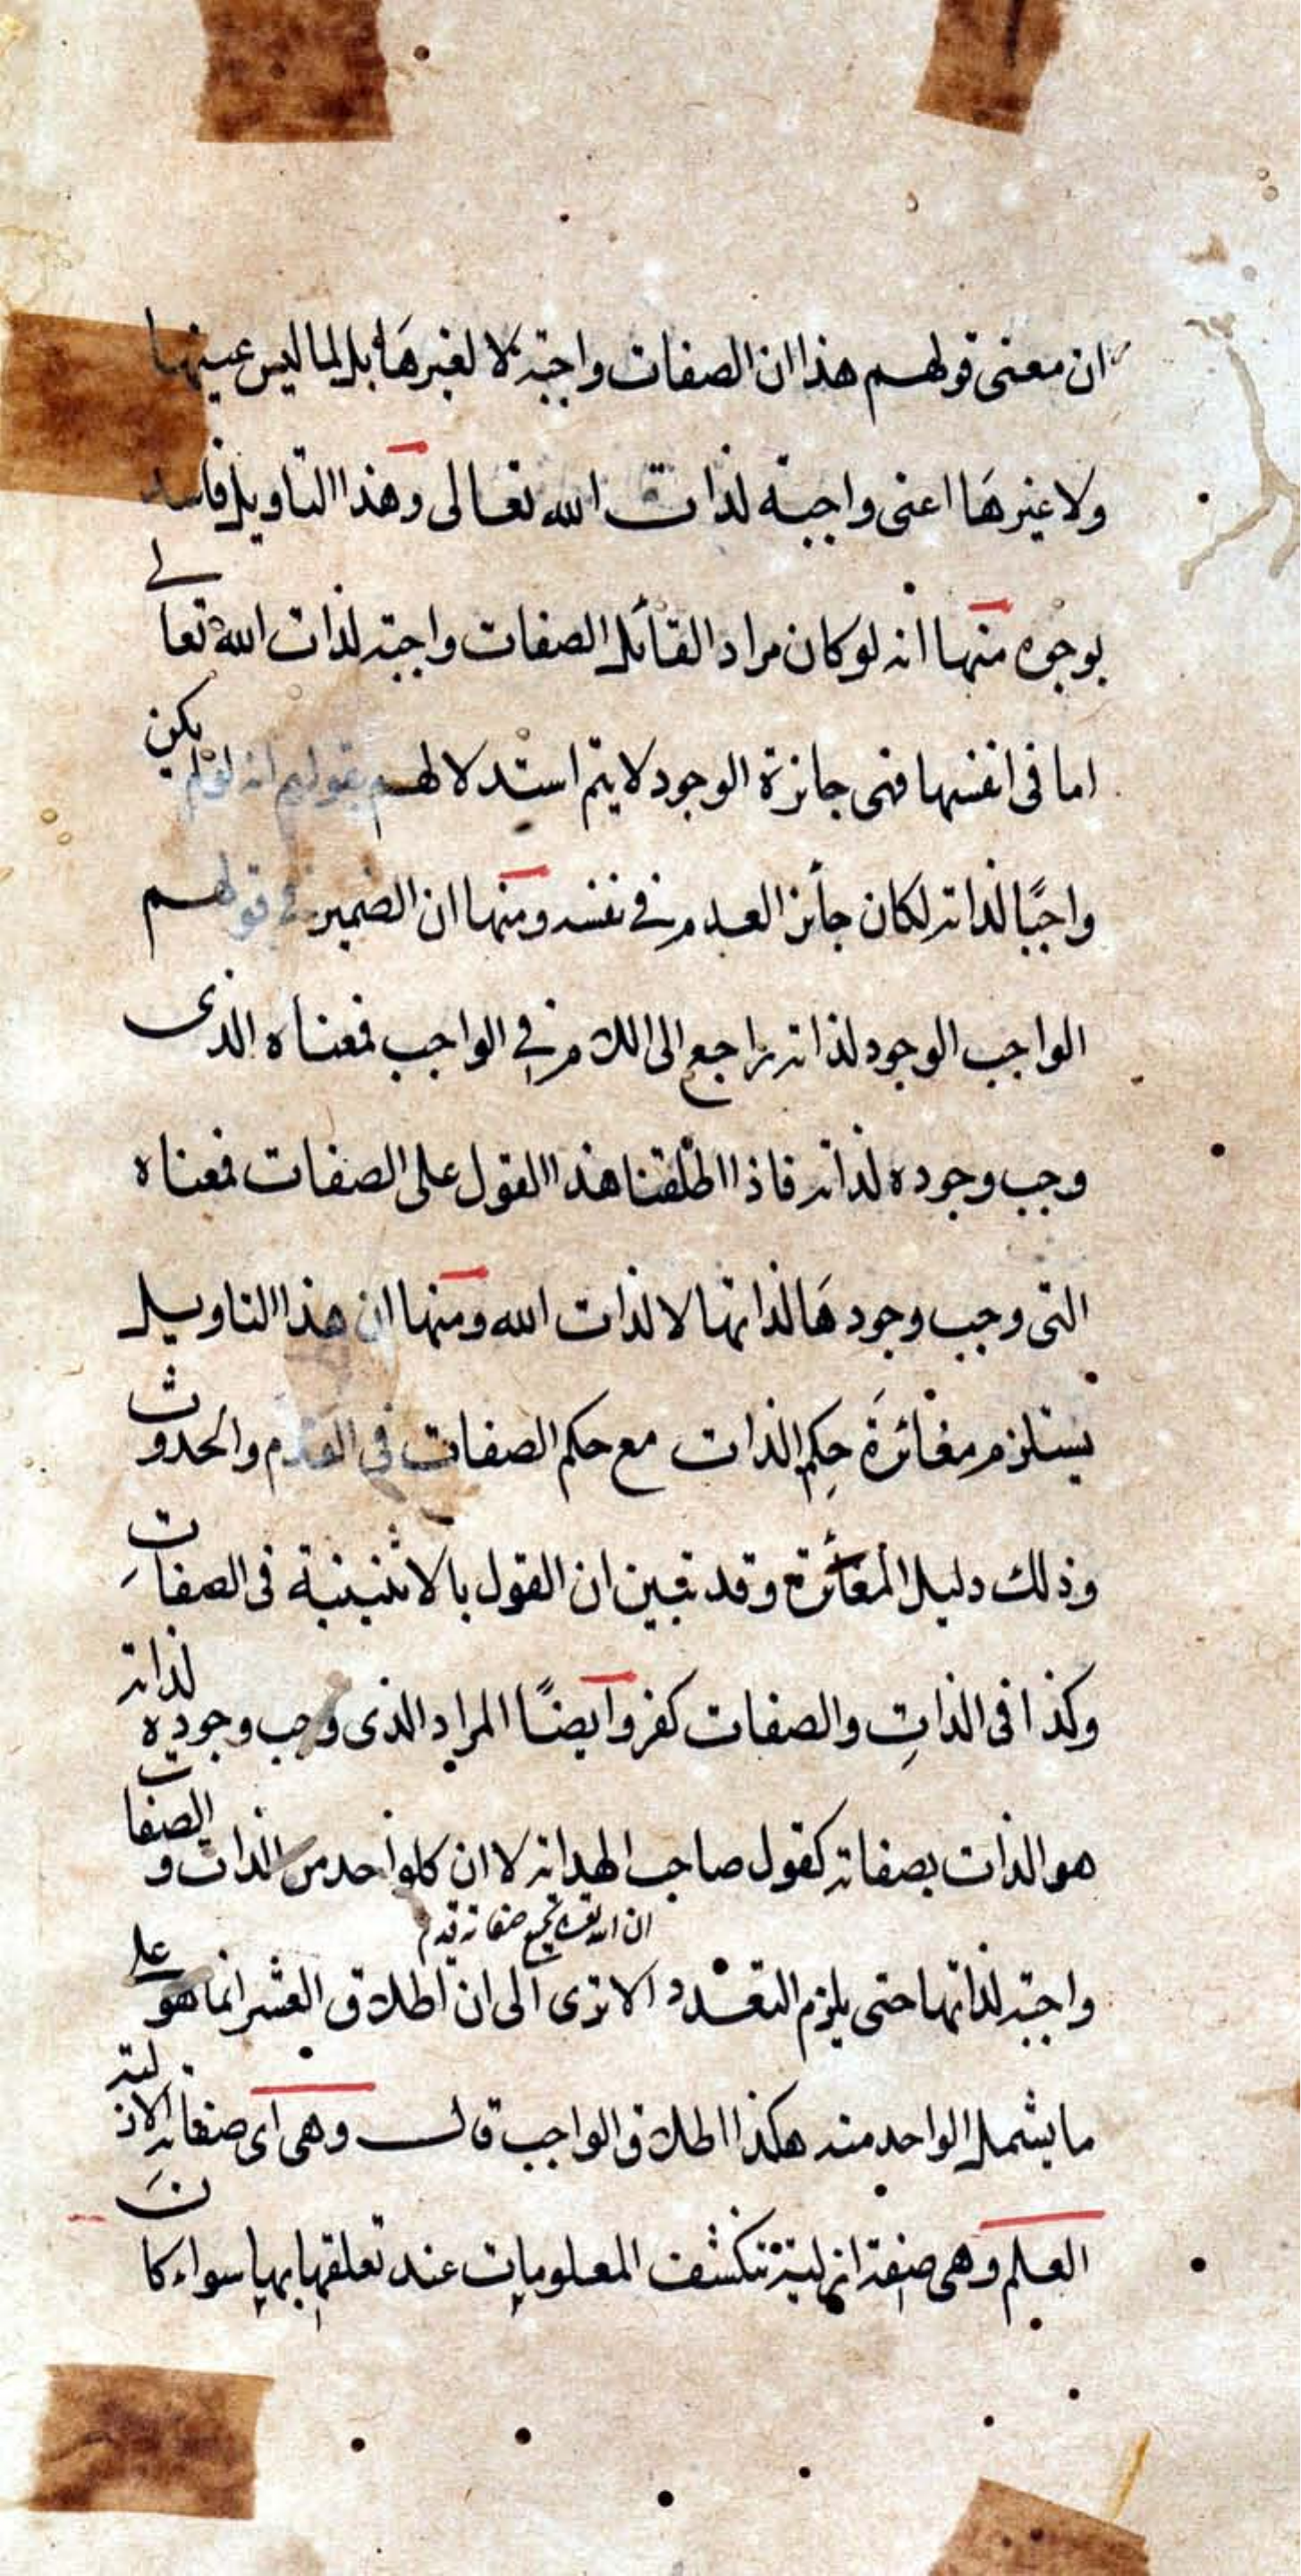 ان معنى قولهم هذا ان الصفات واجبة لا لغيرها بل لما ليس عينها
ولا غيرَها اعنى واجبة لذات الله تعالى وهذا التاويل فاسد
بوجوه منها انه لو كان مراد القائل الصفات واجبة لذات الله تعالى
اما فى انفسها فهى جائزة الوجود لا يتم استدلالهم بقولهم انه لو لم يكن
واجبًا لذاته لكان جائز العدم في نفسه ومنها ان الضمير في قولهم
الواجب الوجود لذاته راجع الى اللام في الواجب فمعناه الذى
وجب وجوده لذاته فاذا اطلقنا هذا القول على الصفات فمعناه
التى وجب وجودهَا لذاتها لا لذات الله ومنها ان هذا التاويل
يستلزم مغائرَة حكم الذات مع حكم الصفات فى القدم والحدوث
وذلك دليل المغائرة وقد تبين ان القول بالاثنينية فى الصفاتِ
وكذا فى الذاتِ والصفات كفر وايضًا المراد الذى وجب وجوده لذاته
هو الذات بصفاته كقول صاحب الهداية لا ان كل واحد من الذات والصفات
ان الله تعالى بجميع صفاته قديم
واجبة لذاتها حتى يلزم التعدد الا ترى الى ان اطلاق العشر انما هو على
ما يشمل الواحد منه هكذا اطلاق الواجب قال وهى اى صفاته الازلية
العلم وهى صفة ازلية تنكشف المعلومات عند تعلقها بها سواء كانَ